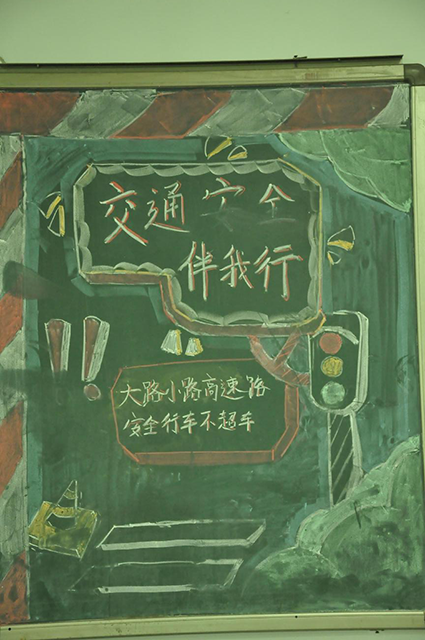 交通安全
伴我行
大路小路高速路
安全行车不超车